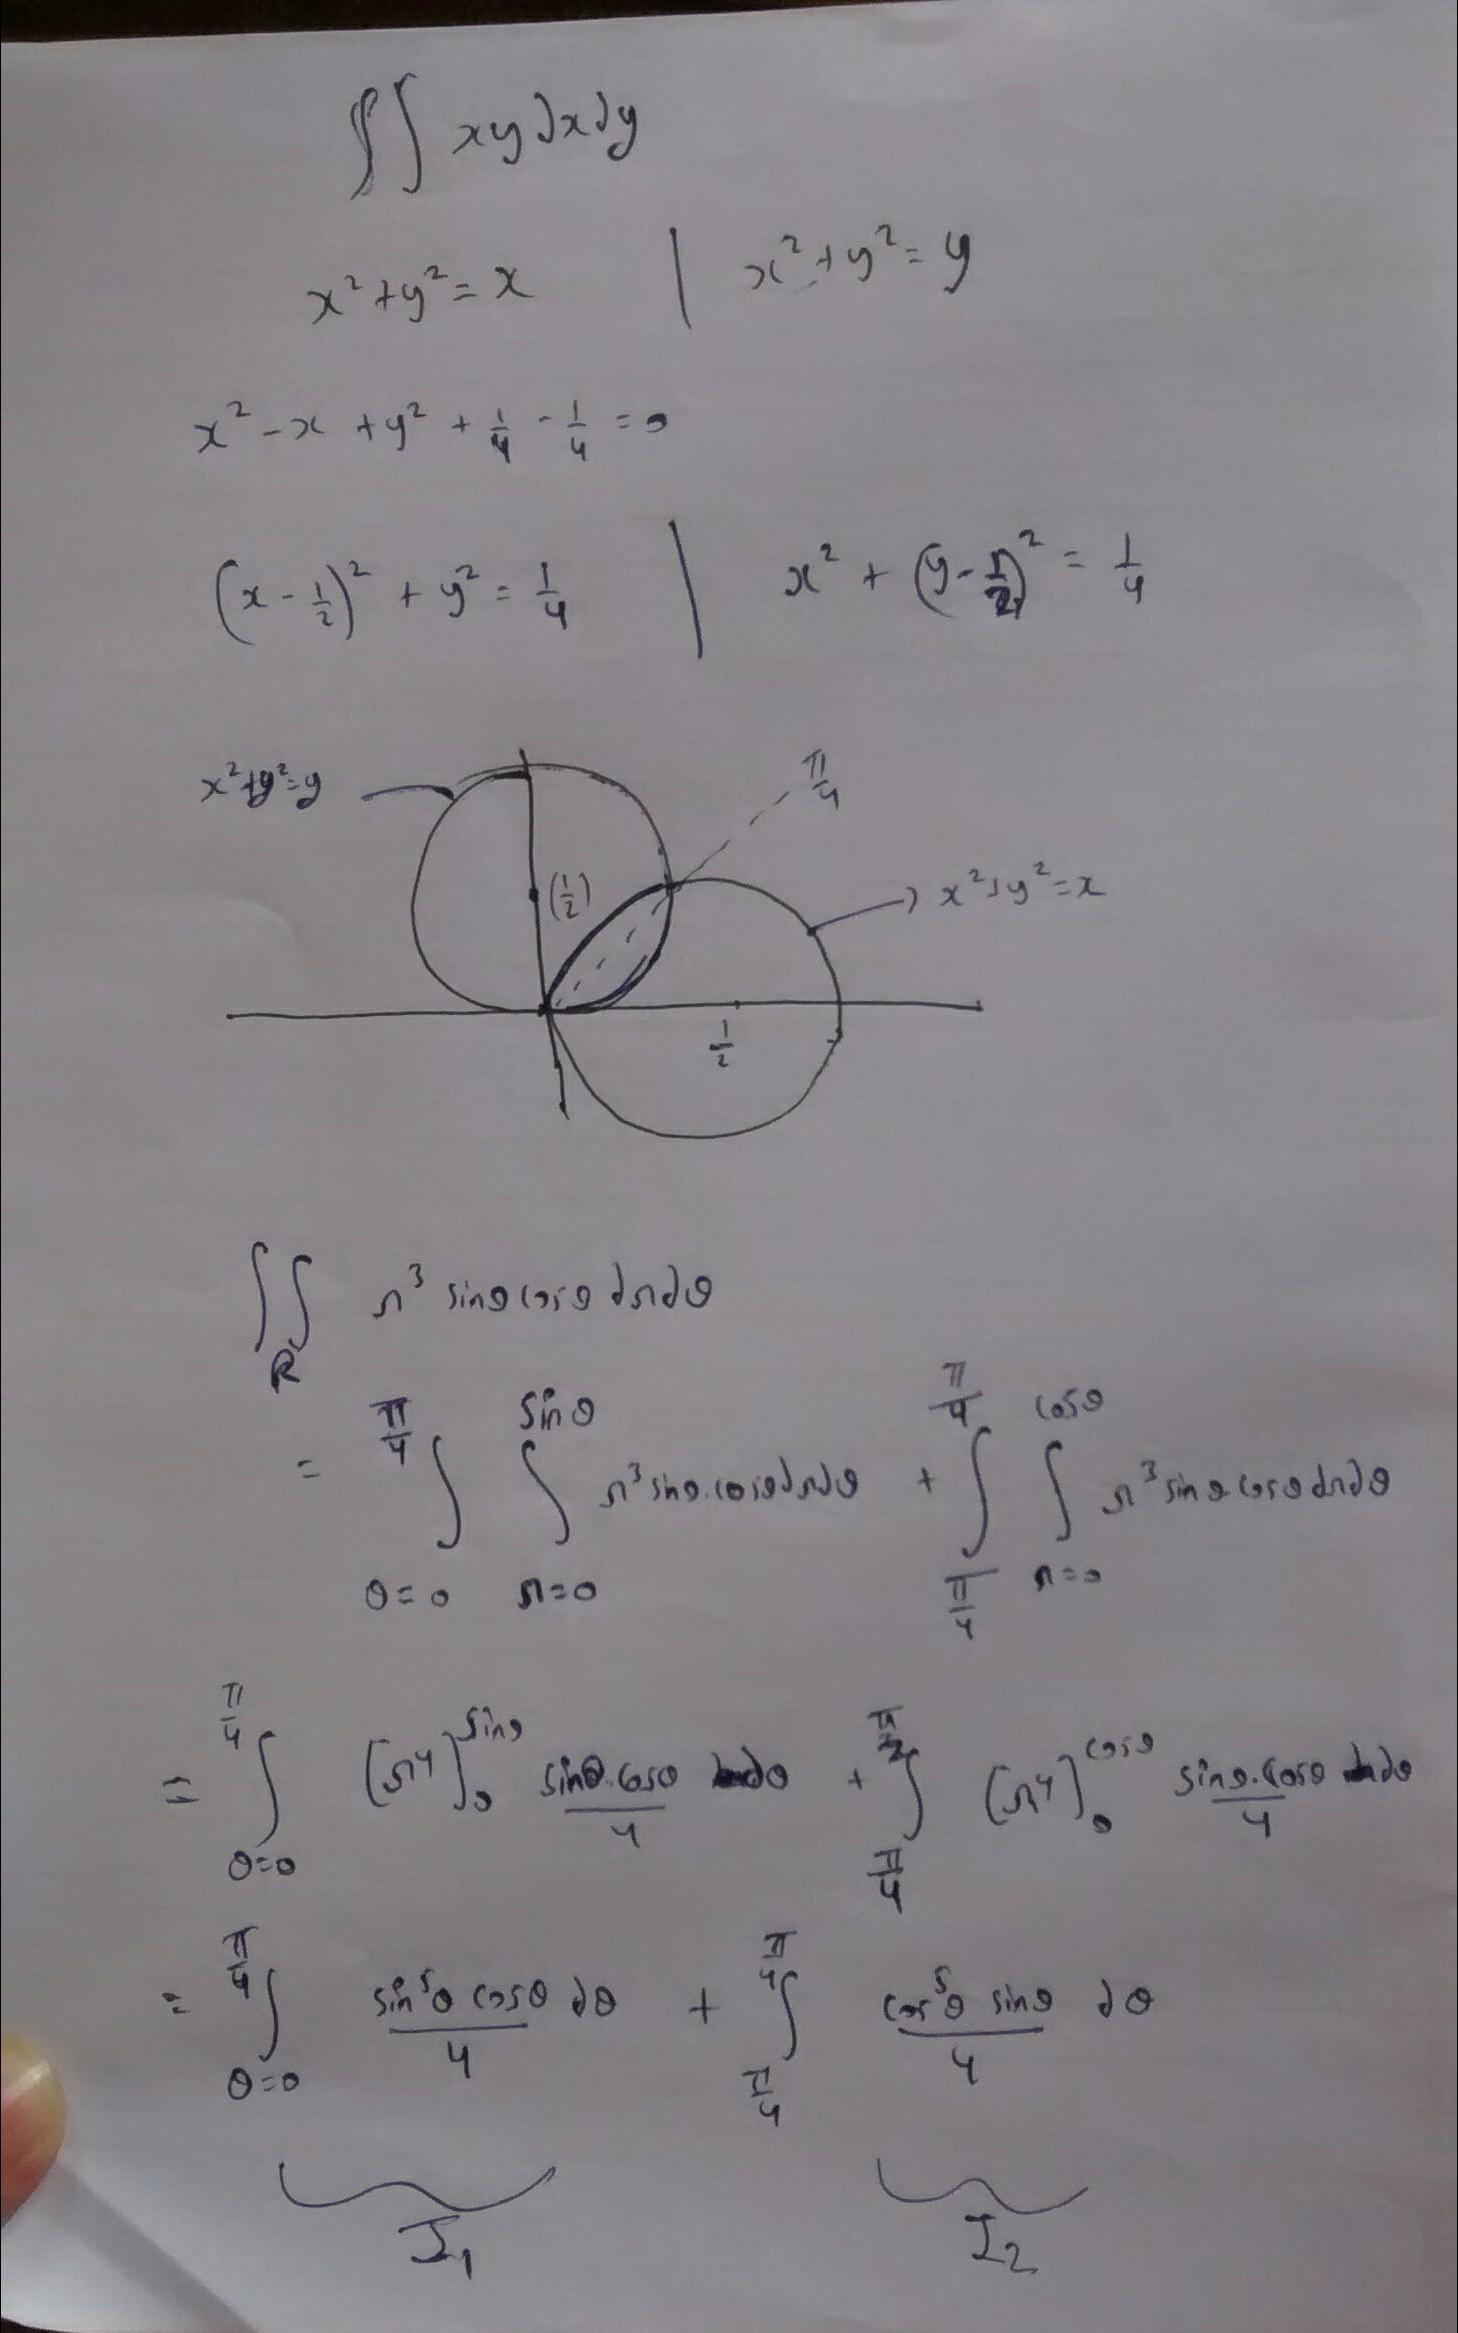 ∫∫ xy dx dy
x² + y² = x | x² + y² = y
x² - x + y² + 1/4 - 1/4 = 0
(x - 1/2)² + y² = 1/4 | x² + (y - 1/2)² = 1/4
π/4
x² + y² = y
(1/2)
x² + y² = x
1/2
∫∫_R r³ sinθ cosθ dr dθ
= ∫_{θ=0}^{π/4} ∫_{r=0}^{sinθ} r³ sinθ.cosθ dr dθ + ∫_{π/4}^{π/4} ∫_{r=0}^{cosθ} r³ sinθ.cosθ dr dθ
= ∫_{θ=0}^{π/4} [r⁴]_0^{sinθ} sinθ.cosθ/4 dθ + ∫_{π/4}^{π/2} [r⁴]_0^{cosθ} sinθ.cosθ/4 dθ
= ∫_{θ=0}^{π/4} sin⁵θ cosθ/4 dθ + ∫_{π/4}^{π/4} cos⁵θ sinθ/4 dθ
I₁ I₂